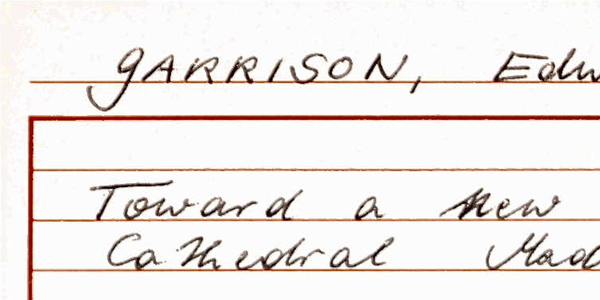 GARRISON, Edw
Toward a new
Cathedral Mad